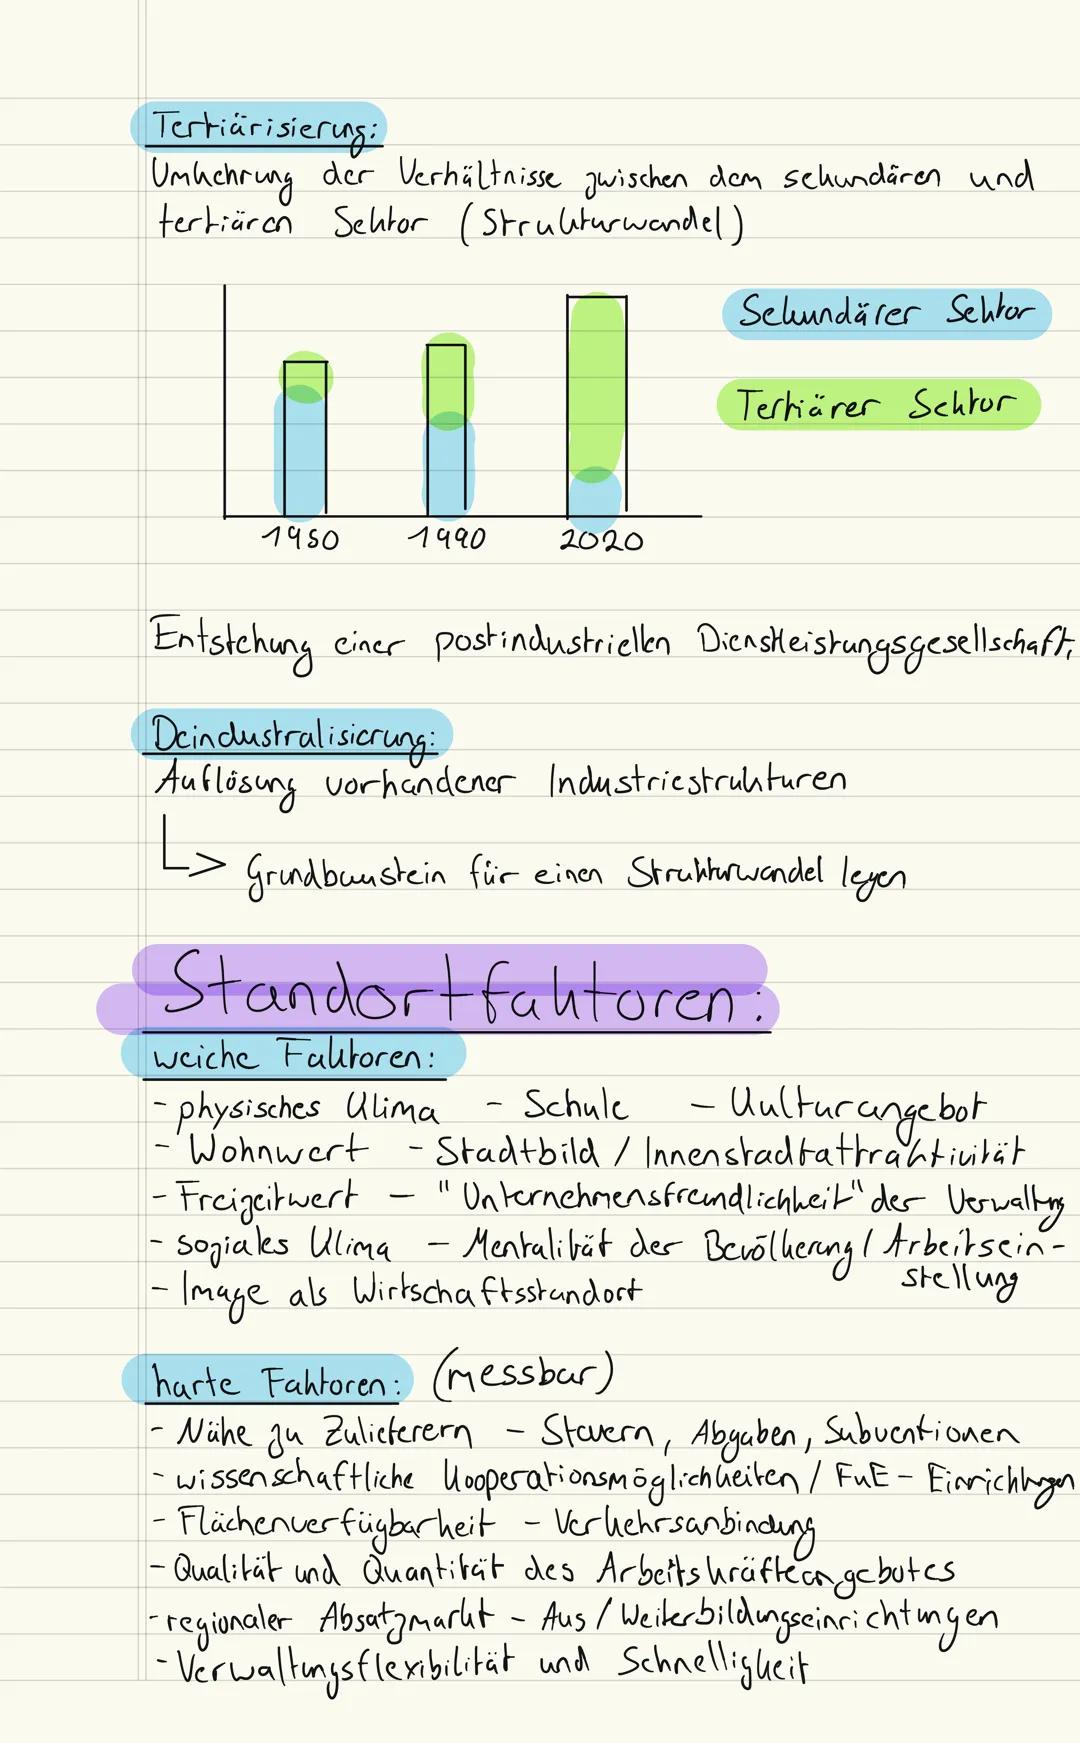 Tertiärisierung:
Umkehrung der Verhältnisse zwischen dem sekundären und
tertiären Sektor (Strukturwandel)
Sekundärer Sektor
Tertiärer Sektor
1950 1990 2020
Entstehung einer postindustriellen Dienstleistungsgesellschaft,
Deindustralisierung:
Auflösung vorhandener Industriestrukturen
↳ Grundbaustein für einen Strukturwandel legen
Standortfaktoren:
weiche Faktoren:
- physisches Klima - Schule - Kulturangebot
- Wohnwert - Stadtbild / Innenstadtattraktivität
- Freizeitwert - "Unternehmensfreundlichkeit" der Verwaltung
- soziales Klima - Mentalität der Bevölkerung / Arbeitsein-
stellung
- Image als Wirtschaftsstandort
harte Faktoren: (messbar)
- Nähe zu Zulieferern - Steuern, Abgaben, Subventionen
- wissenschaftliche Kooperationsmöglichkeiten / FuE - Einrichtungen
- Flächenverfügbarkeit - Verkehrsanbindung
- Qualität und Quantität des Arbeitskräfteangebotes
- regionaler Absatzmarkt - Aus / Weiterbildungseinrichtungen
- Verwaltungsflexibilität und Schnelligkeit